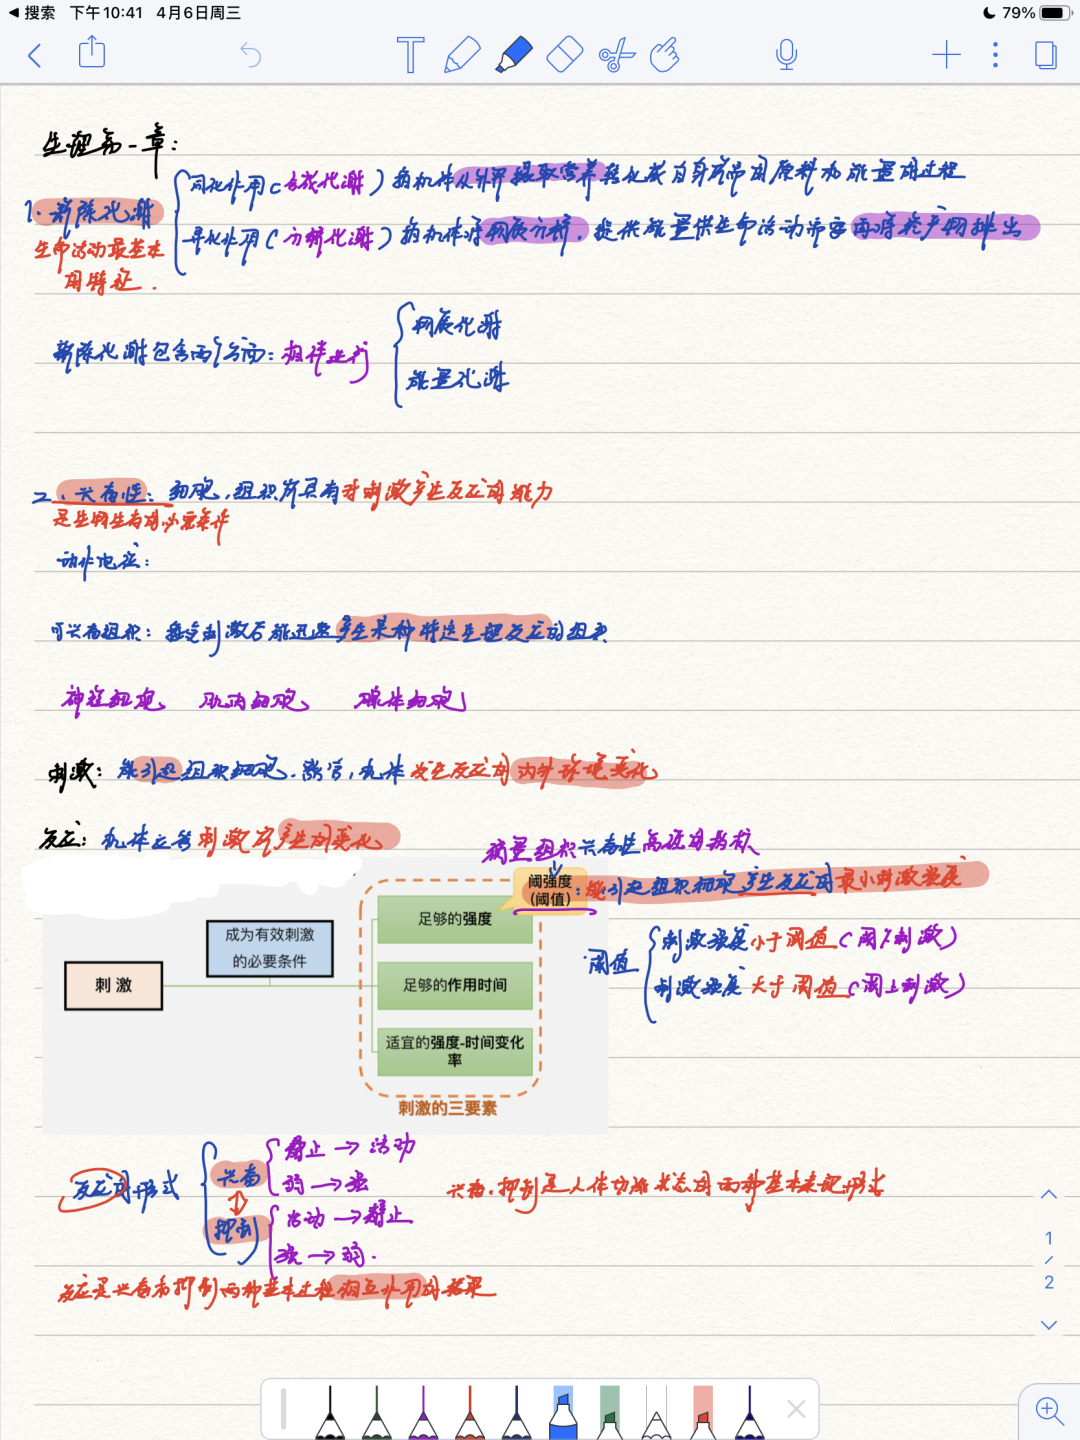 搜索 下午10:41 4月6日周三 79%
生理第一章：
1.新陈代谢
生命活动最基本
的特征.
同化作用(合成代谢)指机体从外界摄取营养转化成自身所需的原料和能量的过程
异化作用(分解代谢)指机体将物质分解.提供能量供生命活动所需再将产物排出
新陈代谢包含两个方面：相伴进行
物质代谢
能量代谢
二、兴奋性：细胞、组织所具有对刺激产生反应的能力
是生物生存的必需条件
动作电位：
可兴奋组织：接受刺激后能迅速产生某种特定生理反应的组织
神经细胞、肌肉细胞、腺体细胞
刺激：能引起组织细胞.器官,机体发生反应的内外环境变化
反应：机体应答刺激所产生的变化
衡量组织兴奋性高低的指标
阈强度
(阈值)
：能引起组织细胞产生反应的最小刺激强度
成为有效刺激
的必要条件
刺激
足够的强度
足够的作用时间
适宜的强度-时间变化
率
刺激的三要素
阈值
刺激强度小于阈值(阈下刺激)
刺激强度大于阈值(阈上刺激)
反应的形式
兴奋
静止→活动
弱→强
抑制
活动→静止
强→弱.
兴奋.抑制是人体功能状态的两种基本表现形式
反应是兴奋和抑制两种基本过程相互作用的结果
1
/
2